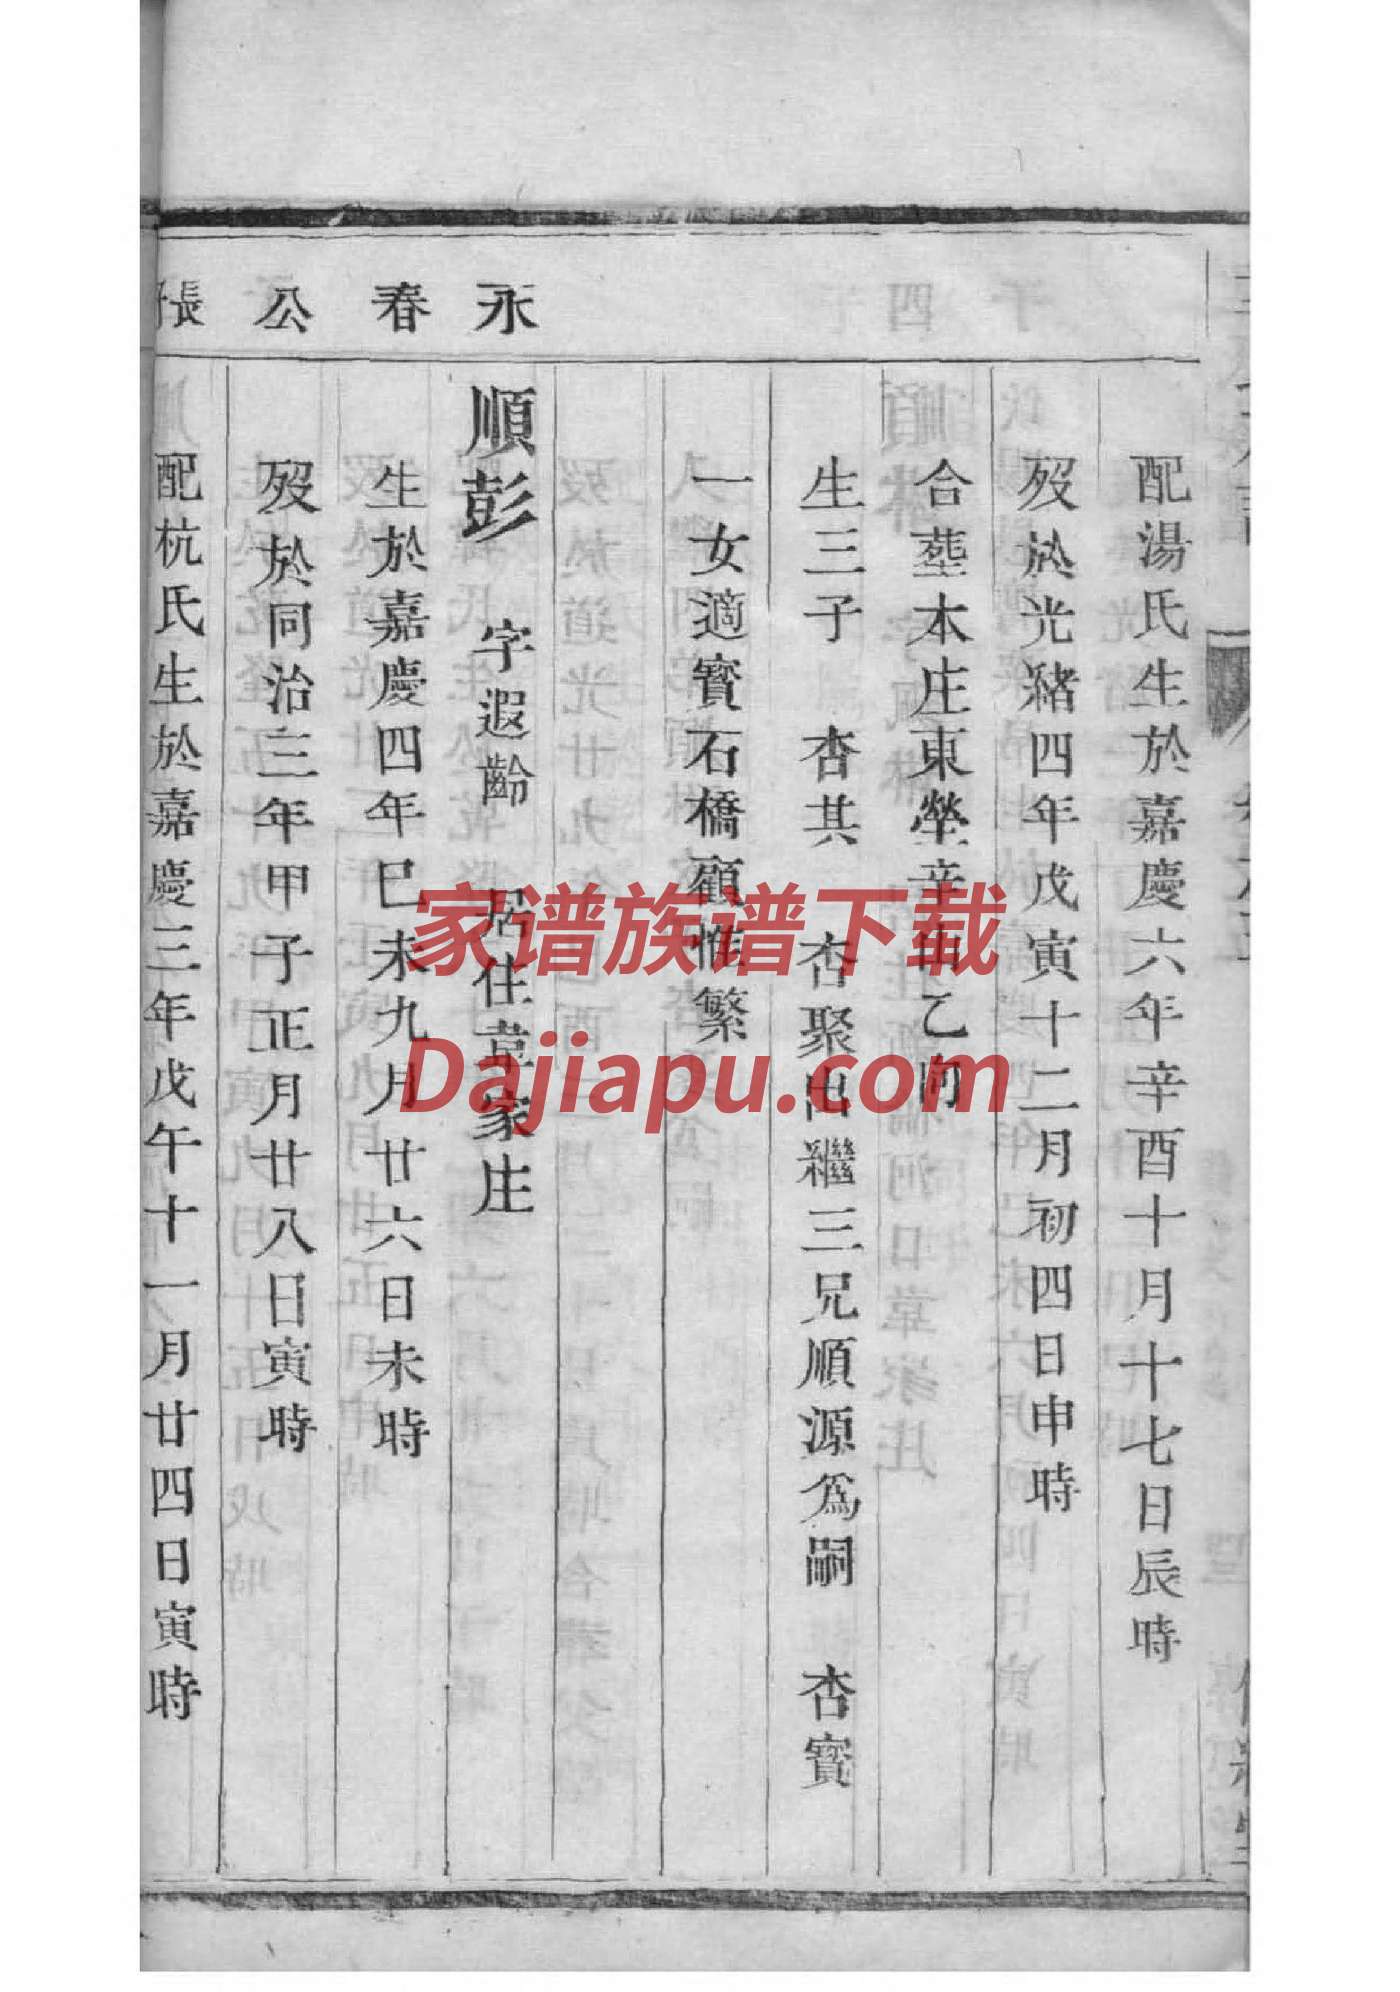 配湯氏生於嘉慶六年辛酉十月十七日辰時
歿於光緖四年戊寅十二月初四日申時
合塟本庄東塋辛山乙向
生三子　杏其　杏聚出繼三兄順源爲嗣　杏寳
一女適寳石橋顧惟繁
永
順彭　字遐齡　居住韋家庄
春
生於嘉慶四年巳未九月廿六日未時
公
歿於同治三年甲子正月廿八日寅時
張
配杭氏生於嘉慶三年戊午十一月廿四日寅時
家谱族谱下载
Dajiapu.com